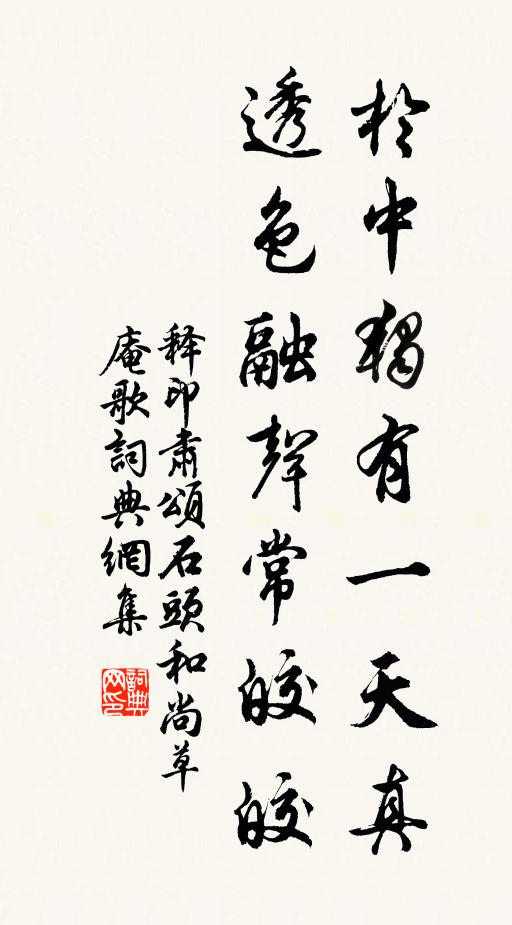 於中獨有一天真
透色融聲常皎皎
释印肅頌石頭和尚草
庵歌詞典網集
詞典网印